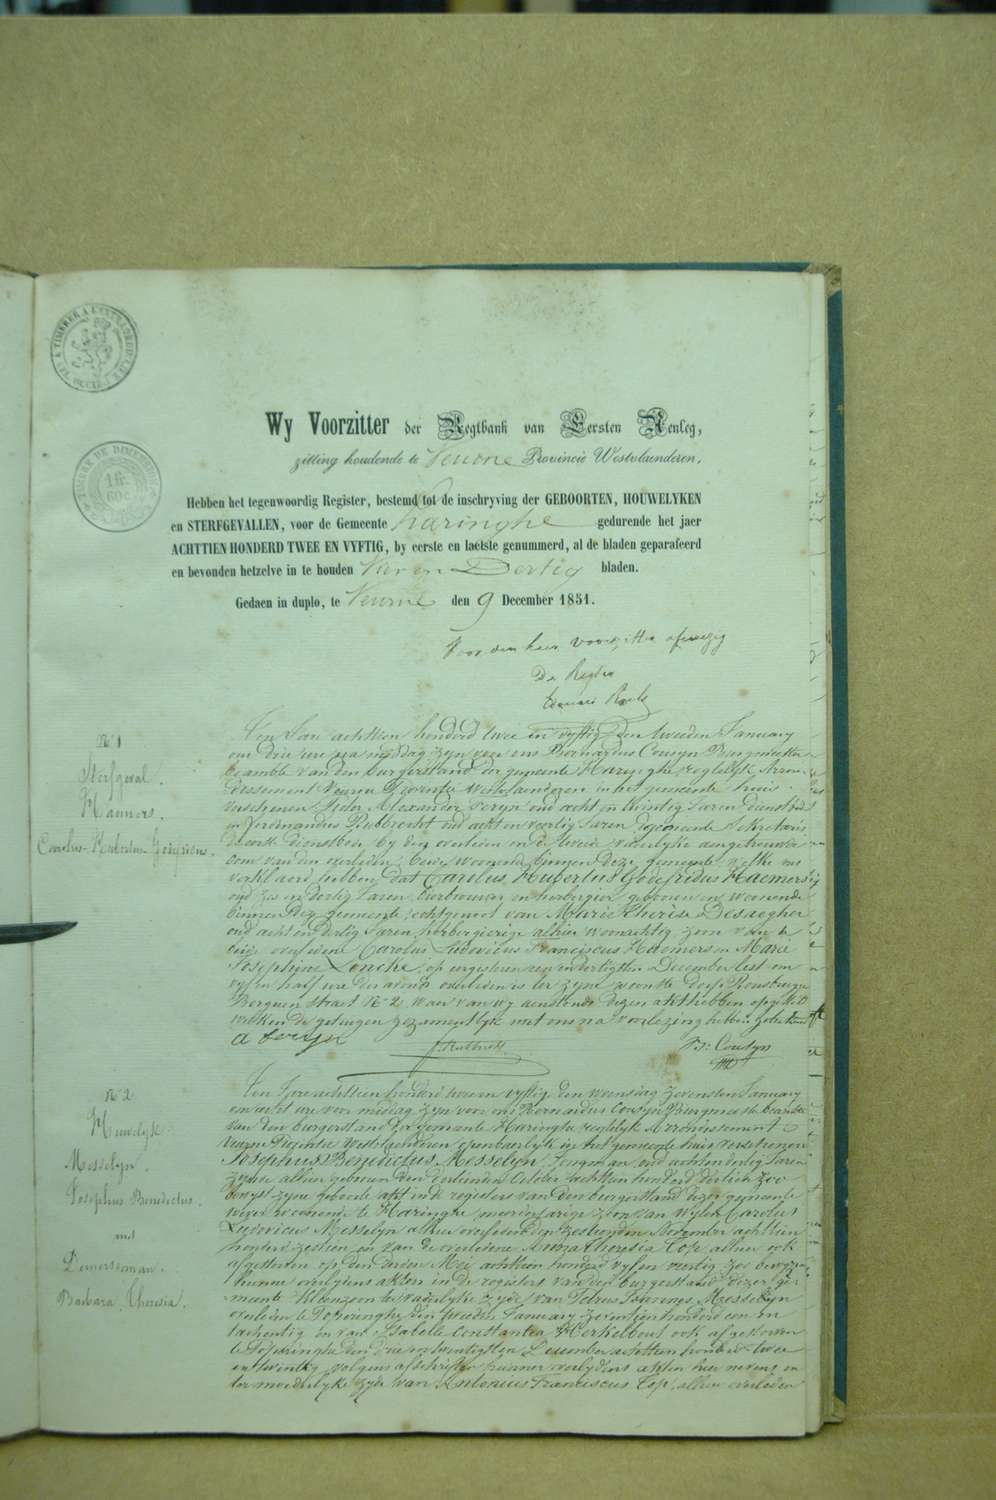 TIMBRE DE DIMENSION
1 fr.
60 c.
Wy Voorzitter der Regtbank van Eersten Aenleg,
zitting houdende te Veurne Provincie Westvlaenderen.
Hebben het tegenwoordig Register, bestemd tot de inschryving der GEBOORTEN, HOUWELYKEN
en STERFGEVALLEN, voor de Gemeente Haringhe gedurende het jaer
ACHTTIEN HONDERD TWEE EN VYFTIG, by eerste en laetste genummerd, al de bladen geparafeerd
en bevonden hetzelve in te houden Vier en Dertig bladen.
Gedaen in duplo, te Veurne den 9 December 1851.
Voor den heer voorzitter afwezig
De Regter
N° 1
Sterfgeval.
Haemers.
Carolus Hubertus Godefridus.
Ten Jare achttien honderd twee en vyftig den tweeden January
om drie ure na middag zyn voor ons Bernardus Cousyn Burgemeester
beambte van den burgerstand der gemeente Haringhe regtelyk Arron-
dissement Veurne Provintie Westvlaenderen in het gemeente huis
verschenen Pieter Alexander Feryn oud acht en twintig Jaren dienstbode
en Ferdinandus Rubbrecht oud acht en veertig Jaren gemeente Sekretaris
de eerste dienstbode by den overleden en de tweede vaderlyke aengetrouwde
oom van den overleden, beide woonende binnen deze gemeente, welke ons
verklaerd hebben dat Carolus Hubertus Godefridus Haemers
oud zes en dertig Jaren bierbrouwer en herbergier geboren en woonende
binnen deze gemeente, echtgenoot van Marie Therese Desaegher
oud acht en dertig Jaren herbergierige alhier woonachtig, zoon van de
overledene Carolus Ludovicus Franciscus Haemers en Marie
Josephine Lencke, op eergisteren een en dertigsten December lest om
vyf en half ure des avonds overleden is ter zyner woonste dorp Rousbrugge
Bergues straet N° 2 waer van wy aenstonds dezen akt hebben opgesteld
welken de getuigen gezamentlyk met ons na voorlezing hebben geteekend
A Feryn F. Rubbrecht B: Cousyn
N° 2
Huwelyk
Messelyn.
Josephus Benedictus.
met
Lemersman.
Barbara Theresia.
Ten Jare achttien honderd twee en vyftig, den woensdag zevensten January
om acht ure voor middag zyn voor ons Bernardus Cousyn Burgemeester beambte
van den burgerstand der gemeente Haringhe regtelyk Arrondissement
Veurne Provintie Westvlaenderen openbaerlyk in het gemeente huis verschenen
Josephus Benedictus Messelyn, Jongman oud acht en dertig Jaren
zynde alhier geboren den dertienden October achttien honderd dertien zoo
bewyst zyne geboorte akt in de registers van den burgerstand dezer gemeente
wever woonende te Haringhe meerderjarige zoon van wylen Carolus
Ludovicus Messelyn alhier overleden den zestienden November achttien
honderd zestien en van de overledene Anna Theresia Top alhier ook
afgestorven op den derden Mei achttien honderd vyf en veertig zoo bewyzen
hunne overlydens akten in de registers van den burgerstand dezer ge-
meente kleinzoon ter vaderlyke zyde van Petrus Joannes Messelyn
overleden te Poperinghe den tweeden January zeventien honderd een en
tachentig en van Isabelle Constantia Kerkelbout ook afgestorven
te Poperinghe den drie en twintigsten December achttien honderd twee
en twintig volgens afschriften hunner overlydens akten hier nevens en
ter moederlyke zyde van Antonius Franciscus Top, alhier overleden